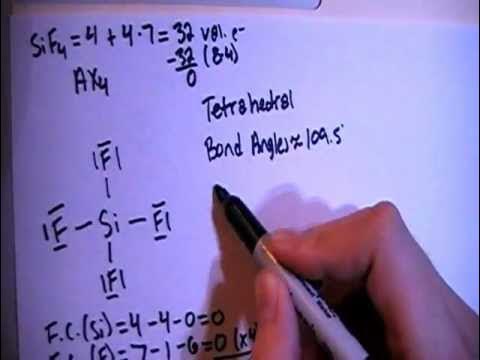 SiF4 = 4 + 4·7 = 32 val. e-
-32 (8·4)
0
AX4
Tetrahedral
Bond Angles ≈ 109.5
|F|
|F — Si — F|
|F|
F.C.(Si) = 4 - 4 - 0 = 0
F.C.(F) = 7 - 1 - 6 = 0 (x4)